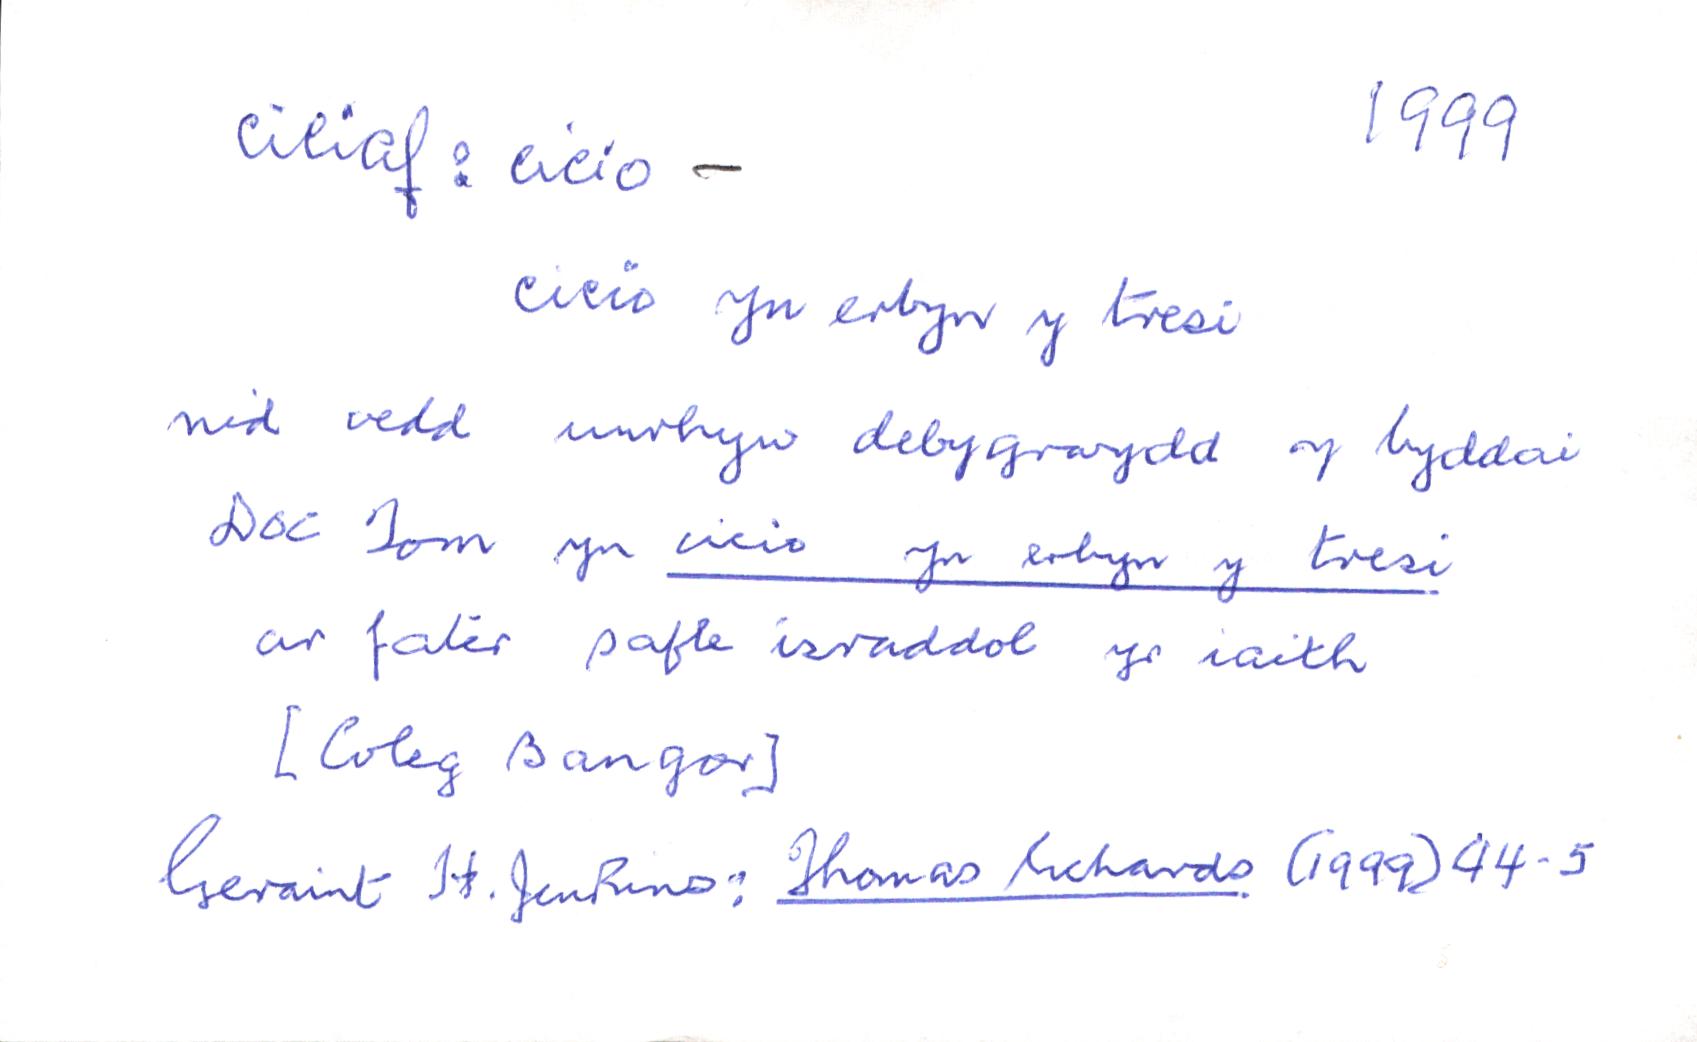 ciciaf: cicio — 1999
cicio yn erbyn y tresi
nid oedd unrhyw debygrwydd y byddai
Doc Tom yn cicio yn erbyn y tresi
ar fater safle israddol yr iaith
[Coleg Bangor]
Geraint H. Jenkins: Thomas Richards (1999) 44-5